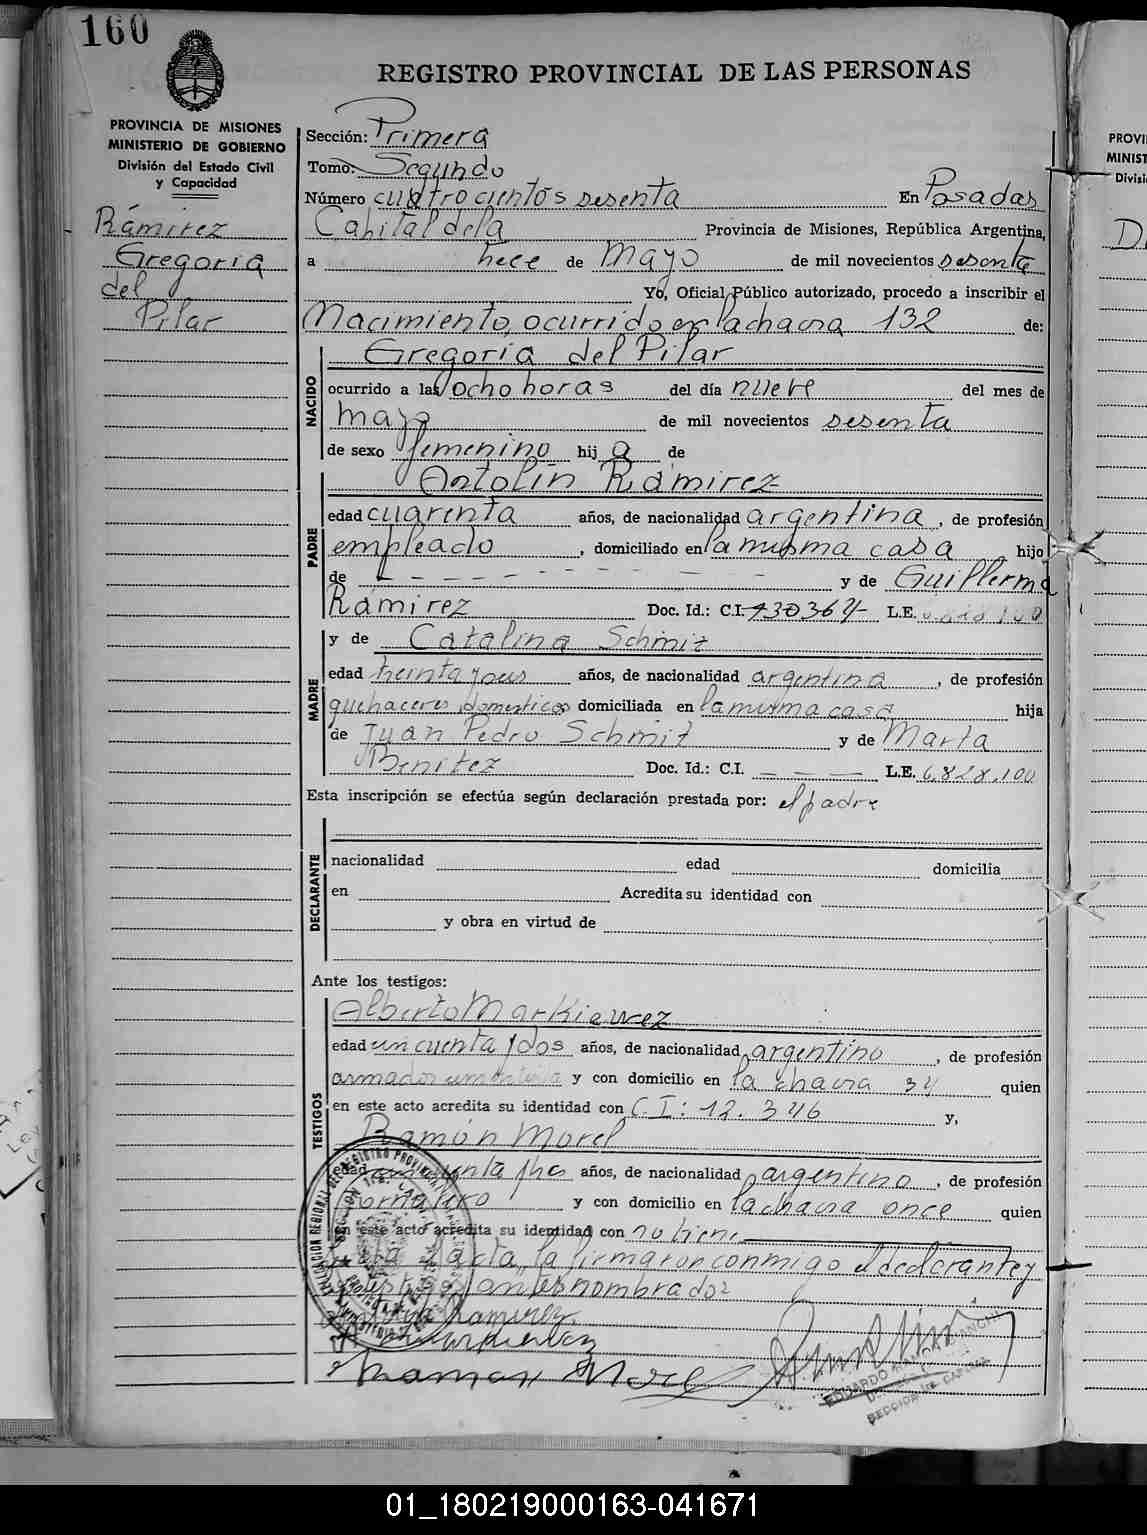 160
REGISTRO PROVINCIAL DE LAS PERSONAS
PROVINCIA DE MISIONES
MINISTERIO DE GOBIERNO
División del Estado Civil
y Capacidad
Rámirez
Gregoria
del
Pilar
Sección: Primera
Tomo: Segundo
Número cuatrocientos sesenta En Posadas
Capital de la Provincia de Misiones, República Argentina,
a trece de Mayo de mil novecientos sesenta
Yo, Oficial Público autorizado, procedo a inscribir el
Nacimiento, ocurrido en la chacra 132 de:
NACIDO
Gregoria del Pilar
ocurrido a las ocho horas del día nueve del mes de
mayo de mil novecientos sesenta
de sexo femenino hij a de
PADRE
Antolín Rámirez
edad cuarenta años, de nacionalidad argentina, de profesión
empleado, domiciliado en la misma casa hijo
de y de Guillerma
Rámirez Doc. Id.: C.I. 430364 L.E.
MADRE
y de Catalina Schmit
edad treinta y años, de nacionalidad argentina, de profesión
quehaceres domesticos domiciliada en la misma casa hija
de Juan Pedro Schmit y de Marta
Benitez Doc. Id.: C.I. — — — L.E. 6.828.100
Esta inscripción se efectúa según declaración prestada por: el padre
DECLARANTE
nacionalidad edad domicilia
en Acredita su identidad con
y obra en virtud de
Ante los testigos:
TESTIGOS
Alberto Markiewez
edad cincuenta y dos años, de nacionalidad argentino, de profesión
armador y con domicilio en la chacra 34 quien
en este acto acredita su identidad con C.I: 12.346 y,
Ramón Morel
edad años, de nacionalidad argentino, de profesión
Jornalero y con domicilio en la chacra once quien
en este acto acredita su identidad con no tiene
acta, la firmaron conmigo el declarante y
testigos antes nombrados
Ramirez
Markiewez
Ramon Morel
EDUARDO RAMON
SECCION 1a. CAPITAL
PROVI
MINIST
Divisi
01_180219000163-041671